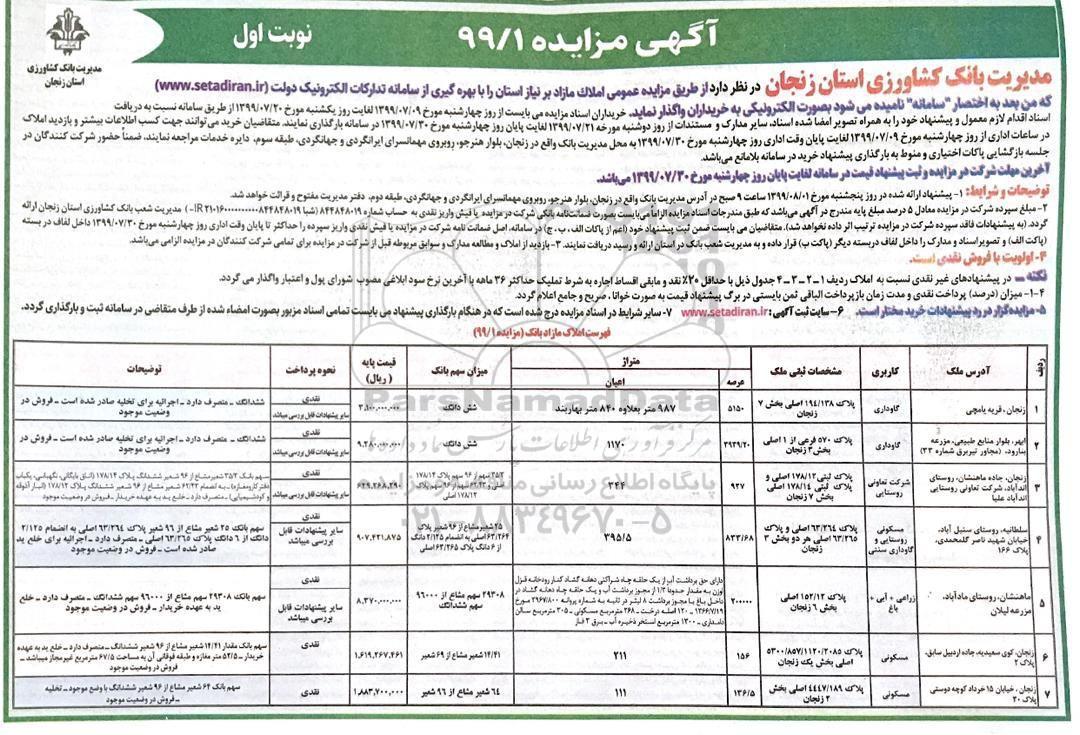 آگهی مزایده ۹۹/۱
نوبت اول
مدیریت بانک کشاورزی
استان زنجان
مدیریت بانک کشاورزی استان زنجان در نظر دارد از طریق مزایده عمومی املاک مازاد بر نیاز استان را با بهره گیری از سامانه تدارکات الکترونیک دولت (www.setadiran.ir)
که من بعد به اختصار "سامانه" نامیده می شود بصورت الکترونیکی به خریداران واگذار نماید. خریداران اسناد مزایده می بایست از روز چهارشنبه مورخ ۱۳۹۹/۰۷/۰۹ لغایت روز یکشنبه مورخ ۱۳۹۹/۰۷/۲۰ از طریق سامانه نسبت به دریافت
اسناد اقدام لازم معمول و پیشنهاد خود را به همراه تصویر امضا شده اسناد، سایر مدارک و مستندات از روز دوشنبه مورخه ۱۳۹۹/۰۷/۲۱ لغایت پایان روز چهارشنبه مورخ ۱۳۹۹/۰۷/۳۰ در سامانه بارگذاری نمایند. متقاضیان خرید می‌توانند جهت کسب اطلاعات بیشتر و بازدید املاک
در ساعات اداری از روز چهارشنبه مورخ ۱۳۹۹/۰۷/۰۹ لغایت پایان وقت اداری روز چهارشنبه مورخ ۱۳۹۹/۰۷/۳۰ به محل مدیریت بانک واقع در زنجان، بلوار هنرجو، روبروی مهمانسرای ایرانگردی و جهانگردی، طبقه سوم، دایره خدمات مراجعه نمایند. ضمناً حضور شرکت کنندگان در
جلسه بازگشایی پاکات اختیاری و منوط به بارگذاری پیشنهاد خرید در سامانه بلامانع می‌باشد.
آخرین مهلت شرکت در مزایده و ثبت پیشنهاد قیمت در سامانه لغایت پایان روز چهارشنبه مورخ ۱۳۹۹/۰۷/۳۰ می‌باشد.
توضیحات و شرایط: ۱- پیشنهاد ارائه شده در روز پنجشنبه مورخ ۱۳۹۹/۰۸/۰۱ ساعت ۹ صبح در آدرس مدیریت بانک واقع در زنجان، بلوار هنرجو، روبروی مهمانسرای ایرانگردی و جهانگردی، طبقه دوم، دفتر مدیریت مفتوح و قرائت خواهد شد.
۲- مبلغ سپرده شرکت در مزایده معادل ۵ درصد مبلغ پایه مندرج در آگهی می‌باشد که طبق مندرجات اسناد مزایده الزاماً می‌بایست بصورت ضمانت‌نامه بانکی شرکت در مزایده یا فیش واریز نقدی به حساب شماره ۸۴۴۸۴۸۰۱۹ مدیریت شعب بانک کشاورزی استان زنجان ارائه
گردد. (به پیشنهادات فاقد سپرده شرکت در مزایده ترتیب اثر داده نخواهد شد). متقاضیان می بایست ضمن ثبت پیشنهاد خود (اعم از پاکات الف، ب، ج) در سامانه، اصل ضمانت نامه شرکت در مزایده یا فیش نقدی واریز سپرده را حداکثر تا پایان وقت اداری روز چهارشنبه مورخ ۱۳۹۹/۰۷/۳۰ داخل لفاف در بسته
(پاکت الف) و تصویر اسناد و مدارک را داخل لفاف دربسته دیگر (پاکت ب) قرار داده و به مدیریت شعب بانک در استان ارائه و رسید دریافت نمایند. ۳- بازدید از املاک و مطالعه مدارک و سوابق مربوطه قبل از شرکت در مزایده برای تمامی شرکت کنندگان در مزایده الزامی می‌باشد.
۴- اولویت با فروش نقدی است.
نکته – در پیشنهادهای غیر نقدی نسبت به املاک ردیف ۱ – ۲ – ۳ – ۴ جدول ذیل با حداقل ۲۰٪ نقد و مابقی اقساط اجاره به شرط تملیک حداکثر ۳۶ ماهه با آخرین نرخ سود ابلاغی مصوب شورای پول و اعتبار واگذار می گردد.
۴-۱- میزان (درصد) پرداخت نقدی و مدت زمان بازپرداخت الباقی ثمن بایستی در برگ پیشنهاد قیمت به صورت خوانا، صریح و جامع اعلام گردد.
۵- مزایده‌گزار در رد پیشنهادات خرید مختار است. ۶- سایت ثبت آگهی: www.setadiran.ir ۷- سایر شرایط در اسناد مزایده درج شده است که در هنگام بارگذاری پیشنهاد می بایست تمامی اسناد مزبور بصورت امضاء شده از طرف متقاضی در سامانه ثبت و بارگذاری گردد.
فهرست املاک مازاد بانک (مزایده ۹۹/۱)
ردیف آدرس ملک کاربری مشخصات ثبتی ملک متراژ میزان سهم بانک قیمت پایه (ریال) نحوه پرداخت توضیحات
عرصه اعیان
۱ زنجان، قریه یامچی گاوداری پلاک ۱۹۴/۱۳۸ اصلی بخش ۷ زنجان ۵۱۵۰ ۹۸۷ متر بعلاوه ۸۴۰ متر بهاربند شش دانگ ۳،۱۰۰،۰۰۰،۰۰۰ نقدی سایر پیشنهادات قابل بررسی میباشد ششدانگ – متصرف دارد – اجرائیه برای تخلیه صادر شده است – فروش در وضعیت موجود
۲ ابهر، بلوار منابع طبیعی، مزرعه بنارود، (مجاور تیربرق شماره ۳۳) گاوداری پلاک ۵۷۰ فرعی از ۱ اصلی بخش ۳ زنجان ۳۹۳۹/۲۰ ۱۱۷۰ شش دانگ ۹،۲۸۰،۰۰۰،۰۰۰ نقدی سایر پیشنهادات قابل بررسی میباشد ششدانگ – متصرف دارد – اجرائیه برای تخلیه صادر شده است – فروش در وضعیت موجود
۳ زنجان، جاده ماهنشان، روستای اندآباد، شرکت تعاونی روستایی اندآباد علیا شرکت تعاونی روستایی پلاک ثبتی ۱۷۸/۱۲ اصلی و پلاک ثبتی ۱۷۸/۱۴ اصلی و بخش ۷ زنجان ۹۲۷ ۳۴۴ ۶۴۹،۲۶۸،۲۹۰ نقدی سایر پیشنهادات قابل بررسی میباشد
۴ سلطانیه، روستای سنبل آباد، خیابان شهید ناصر گلمحمدی، پلاک ۱۶۶ مسکونی روستایی و گاوداری سنتی پلاک ۶۳/۲۶۴ اصلی و پلاک ۶۳/۲۶۵ اصلی هر دو بخش ۳ زنجان ۸۳۳/۶۸ ۳۹۵/۵ ۲۵ شعیر مشاع از ۹۶ شعیر پلاک ۶۳/۲۶۴ اصلی به انضمام ۲/۱۲۵ دانگ از ۶ دانگ پلاک ۶۳/۲۶۵ اصلی ۹۰۷،۴۲۱،۸۷۵ نقدی سایر پیشنهادات قابل بررسی میباشد سهم بانک ۲۵ شعیر مشاع از ۹۶ شعیر پلاک ۶۳/۲۶۴ اصلی به انضمام ۲/۱۲۵ دانگ از ۶ دانگ پلاک ۶۳/۲۶۵ اصلی – متصرف دارد – اجرائیه برای خلع ید صادر شده است – فروش در وضعیت موجود
۵ ماهنشان، روستای مادآباد، مزرعه لیلان زراعی + آبی + باغ پلاک ۱۵۲/۱۲ اصلی بخش ۶ زنجان ۲۰۰۰۰۰ ۲۹۳۰۸ سهم مشاع از ۹۶۰۰۰ سهم ششدانگ ۸،۳۷۰،۰۰۰،۰۰۰ نقدی سایر پیشنهادات قابل بررسی میباشد سهم بانک ۲۹۳۰۸ سهم مشاع از ۹۶۰۰۰ سهم ششدانگ – متصرف دارد – خلع ید به عهده خریدار – فروش در وضعیت موجود
۶ زنجان، کوی سعیدیه، جاده اردبیل سابق، پلاک ۲ مسکونی پلاک ۵۳۰۰/۸۵۷/۱۱۲۰/۲۰۸۵ اصلی بخش یک زنجان ۱۵۶ ۲۱۱ ۱۴/۴۱ شعیر مشاع از ۶۹ شعیر ۱،۶۱۹،۲۶۷،۴۶۱ نقدی سهم بانک مقدار ۱۴/۴۱ شعیر مشاع از ۹۶ شعیر ششدانگ – متصرف دارد – خلع ید به عهده خریدار – ۵۲/۵ متر مغازه و طبقه فوقانی آن به مساحت ۶۷/۵ مترمربع غیرمجاز میباشد – فروش در وضعیت موجود
۷ زنجان، خیابان ۱۵ خرداد کوچه دوستی پلاک ۲۰ مسکونی پلاک ۴۴۴۷/۱۸۹ اصلی بخش ۲ زنجان ۱۳۶/۵ ۱۱۱ ۶۴ شعیر مشاع از ۹۶ شعیر ۱،۸۸۳،۷۰۰،۰۰۰ نقدی سهم بانک ۶۴ شعیر مشاع از ۹۶ شعیر ششدانگ با وضع موجود – تخلیه – فروش در وضعیت موجود
ParsNamadData
۰۲۱-۸۸۳۴۹۶۷۰-۵